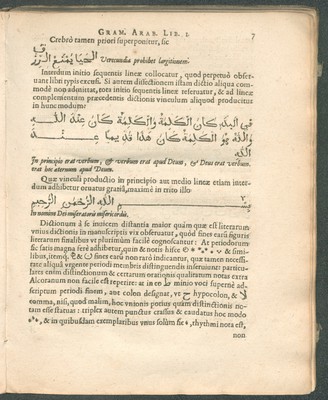 GRAM. ARAB. LIB. I. 7
Crebrò tamen priori superponitur, sic
الحيا يمنع الرزق
Verecundia prohibet largitionem.
Interdum initio sequentis lineæ collocatur, quod perpetuò obser-
uant libri typis excusi. Si autem dissectionem istam dictio aliqua com-
modè non admittat, tota initio sequentis lineæ reseruatur, & ad lineæ
complementum præcedentis dictionis vinculum aliquod producitur
in hunc modum:
في البدء كان الكلمة والكلمة كان عند الله
والله هو الكلمة كان هذا قديما عند
الله
In principio erat verbum, & verbum erat apud Deum, & Deus erat verbum.
erat hoc æternum apud Deum.
Quæ vinculi productio in principio aut medio lineæ etiam inter-
dum adhibetur ornatus gratiâ, maximè in trito illo
بسم الله الرحمن الرحيم
In nomine Dei miseratoris misericordis.
Dictionum à se inuicem distantia maior quàm quæ est literarum
vnius dictionis in manuscriptis vix obseruatur, quòd sines earū figuris
literarum finalibus vt plurimùm facilè cognoscantur: At periodorum
sic satis magna ferè adhibetur, cùm & notis hisce & simi-
libus, itemq́; & fines earū non rarò indicantur, quæ tamen necessi-
tate aliquâ vrgente periodi membris distinguendis inseruiunt: particu-
lares enim distinctionum & certarum orationis qualitatum notas extra
Alcoranum non facile est reperire: at in eo ط minio voci supernè ad-
scriptum periodi finem, aut colon designat, vt ج hypocolon, & لا
comma, nisi, quod malim, hoc vnionis potius quàm distinctionis no-
tam esse statuas: triplex autem punctur crassius & caudatus hoc modo
, & in quibusdam exemplaribus vnus solùm sic , rhythmi nota est,
non